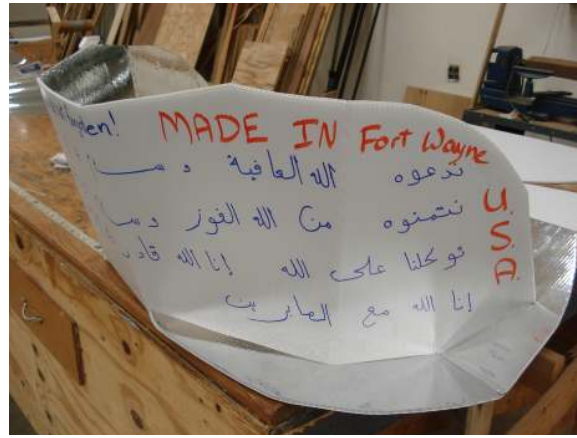 MADE IN Fort Wayne
U.
S.
A.
ندعوه الله العافية و
نتمنوه من الله الفوز
توكلنا على الله إنا الله قادر
إنا الله مع الصابرين